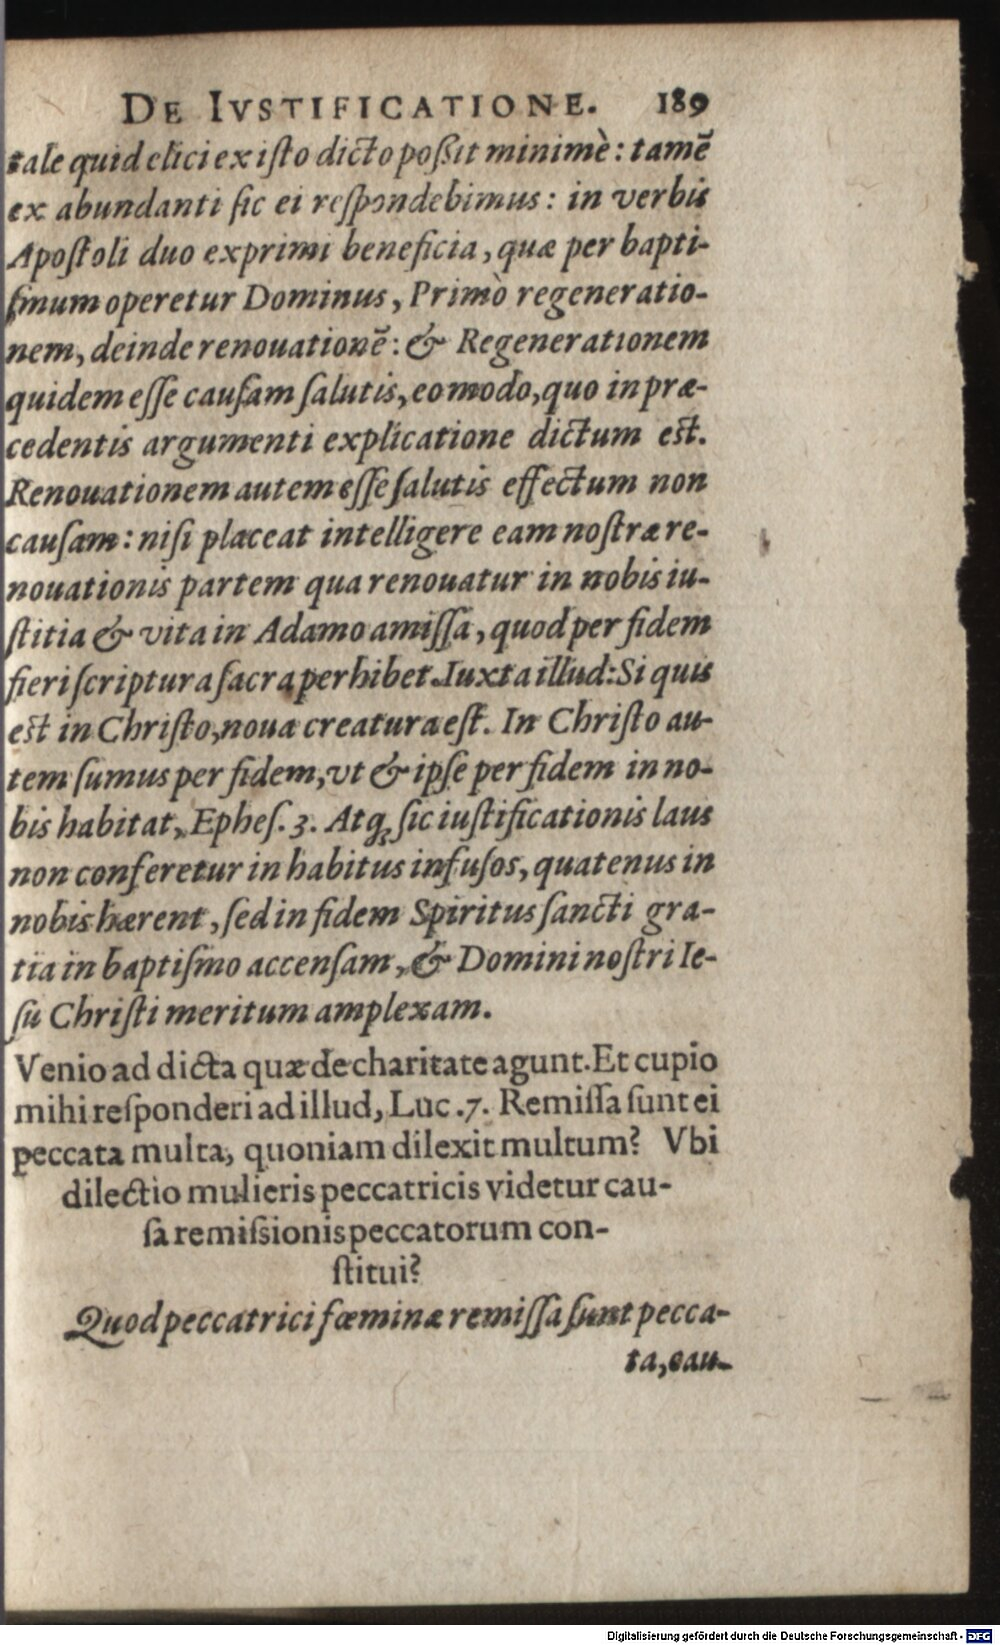 DE IVSTIFICATIONE. 189
tale quid elici ex isto dicto poßit minimè: tamē
ex abundanti sic ei respondebimus: in verbis
Apostoli duo exprimi beneficia, quæ per bapti-
smum operetur Dominus, Primò regeneratio-
nem, deinde renouationē: & Regenerationem
quidem esse causam salutis, eo modo, quo in præ-
cedentis argumenti explicatione dictum est.
Renouationem autem esse salutis effectum non
causam: nisi placeat intelligere eam nostræ re-
nouationis partem qua renouatur in nobis iu-
stitia & vita in Adamo amissa, quod per fidem
fieri scriptura sacra perhibet. Iuxta illud: Si quis
est in Christo, noua creatura est. In Christo au-
tem sumus per fidem, vt & ipse per fidem in no-
bis habitat, Ephes. 3. Atq; sic iustificationis laus
non conferetur in habitus infusos, quatenus in
nobis hærent, sed in fidem Spiritus sancti gra-
tia in baptismo accensam, & Domini nostri Ie-
su Christi meritum amplexam.
Venio ad dicta quæ de charitate agunt. Et cupio
mihi responderi ad illud, Luc. 7. Remissa sunt ei
peccata multa, quoniam dilexit multum? Vbi
dilectio mulieris peccatricis videtur cau-
sa remissionis peccatorum con-
stitui?
Quod peccatrici fœminæ remissa sunt pecca-
ta, cau-
Digitalisierung gefördert durch die Deutsche Forschungsgemeinschaft - DFG